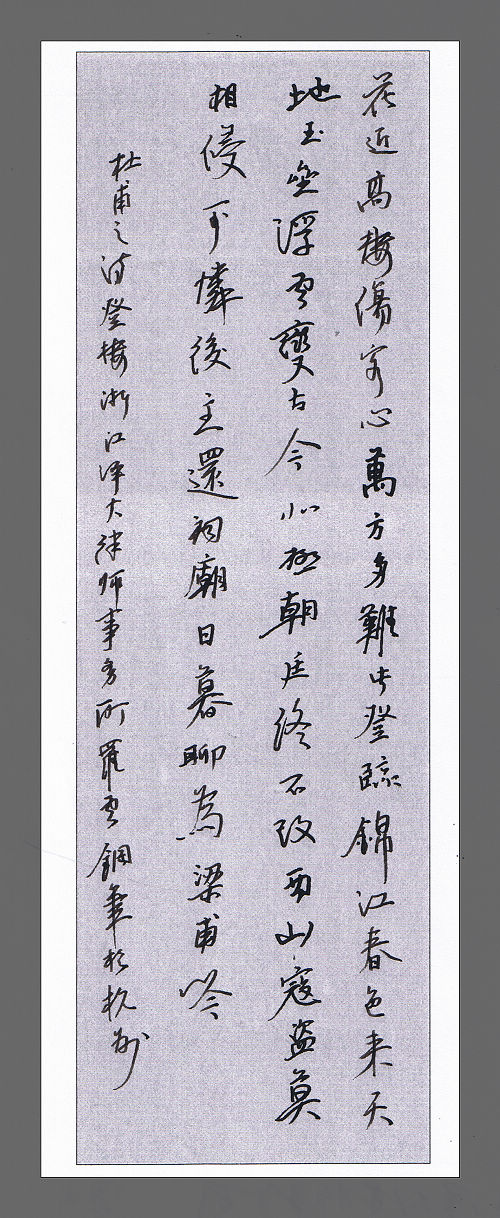 花近高樓傷客心萬方多難此登臨錦江春色来天
地玉垒浮雲變古今北極朝廷終不改西山寇盜莫
相侵可憐後主還祠廟日暮聊為梁甫吟
杜甫之詩登樓浙江泽大律师事务所羅雲鋼筆於杭州